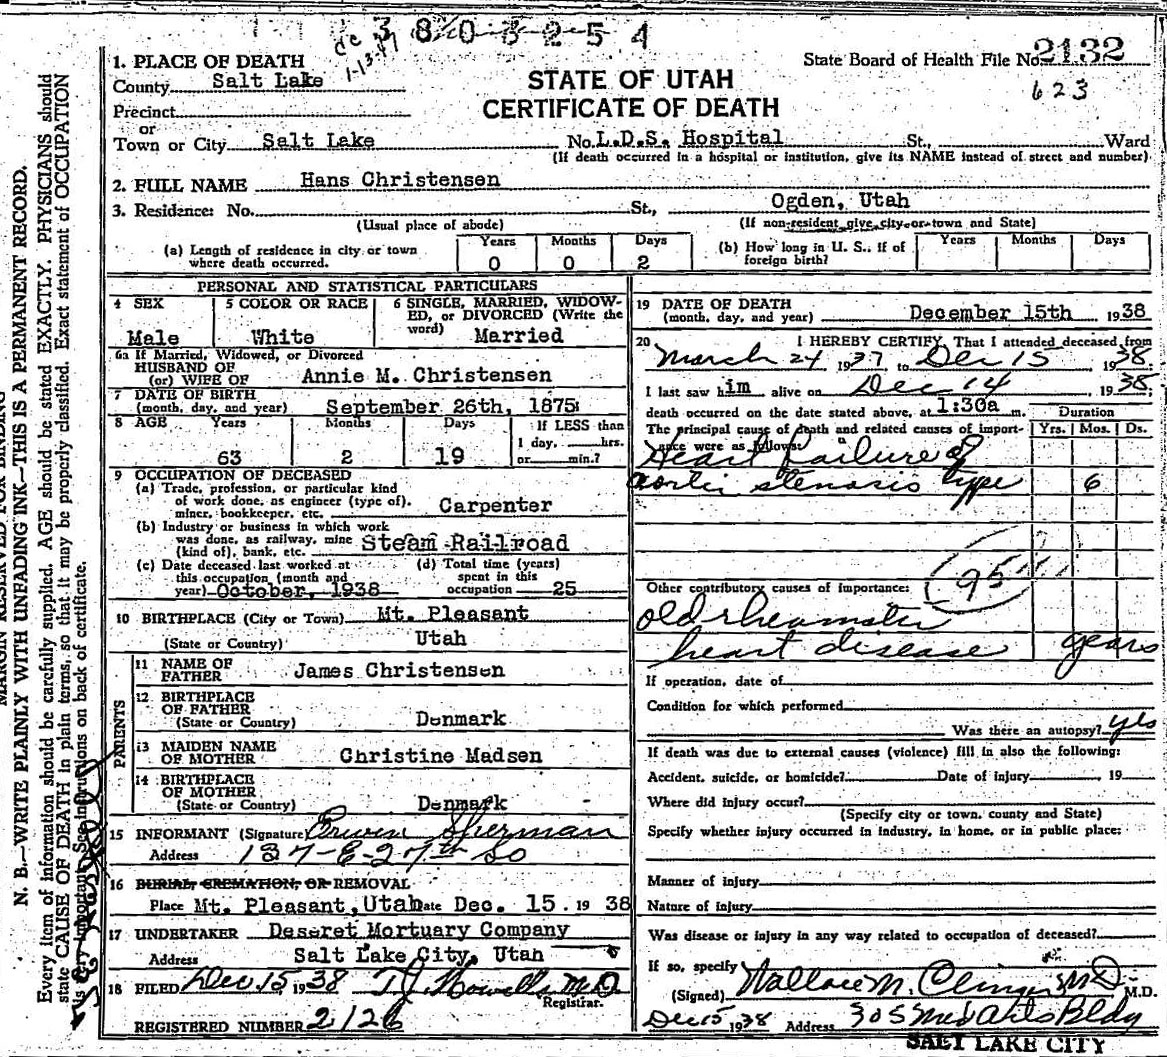 3803254
State Board of Health File No. 2132
623
1-13-47
STATE OF UTAH
CERTIFICATE OF DEATH
1. PLACE OF DEATH
County Salt Lake
Precinct
or
Town or City Salt Lake No. L.D.S. Hospital St., Ward
(If death occurred in a hospital or institution, give its NAME instead of street and number)
2. FULL NAME Hans Christensen
3. Residence: No. St., Ogden, Utah
(Usual place of abode) (If non-resident give city or town and State)
(a) Length of residence in city or town where death occurred. Years 0 Months 0 Days 2
(b) How long in U. S., if of foreign birth? Years Months Days
PERSONAL AND STATISTICAL PARTICULARS
4 SEX Male
5 COLOR OR RACE White
6 SINGLE, MARRIED, WIDOWED, or DIVORCED (Write the word) Married
6a If Married, Widowed, or Divorced
HUSBAND OF
(or) WIFE OF Annie M. Christensen
7 DATE OF BIRTH
(month, day, and year) September 26th, 1875
8 AGE Years 63 Months 2 Days 19 If LESS than 1 day, hrs. or min.?
9 OCCUPATION OF DECEASED
(a) Trade, profession, or particular kind
of work done, as engineer (type of),
miner, bookkeeper, etc. Carpenter
(b) Industry or business in which work
was done, as railway, mine
(kind of), bank, etc. Steam Railroad
(c) Date deceased last worked at
this occupation (month and
year) October, 1938
(d) Total time (years)
spent in this
occupation 25
10 BIRTHPLACE (City or Town) Mt. Pleasant
(State or Country) Utah
PARENTS
11 NAME OF
FATHER James Christensen
12 BIRTHPLACE
OF FATHER
(State or Country) Denmark
13 MAIDEN NAME
OF MOTHER Christine Madsen
14 BIRTHPLACE
OF MOTHER
(State or Country) Denmark
15 INFORMANT (Signature) Erwin Sherman
Address 137-E-27th So
16 BURIAL, CREMATION, OR REMOVAL
Place Mt. Pleasant, Utah Date Dec. 15, 1938
17 UNDERTAKER Deseret Mortuary Company
Address Salt Lake City, Utah
18 FILED Dec 15, 1938 T.J. Howells M.D.
Registrar.
REGISTERED NUMBER 2126
19 DATE OF DEATH
(month, day, and year) December 15th 1938
20 I HEREBY CERTIFY, That I attended deceased from
March 24 1937 to Dec 15 1938.
I last saw him alive on Dec 14 1938.
death occurred on the date stated above, at 1:30a m.
Duration
Yrs. Mos. Ds.
The principal cause of death and related causes of importance were as follows:
Heart failure of
aortic stenosis type 6
Other contributory causes of importance: 95
old rheumatic
heart disease years
If operation, date of
Condition for which performed
Was there an autopsy? yes
If death was due to external causes (violence) fill in also the following:
Accident, suicide, or homicide? Date of injury, 19
Where did injury occur?
(Specify city or town, county and State)
Specify whether injury occurred in industry, in home, or in public place:
Manner of injury
Nature of injury
Was disease or injury in any way related to occupation of deceased?
If so, specify
(Signed) Wallace M. M.D. M.D.
Dec 15 1938 Address 305 Med Arts Bldg
SALT LAKE CITY
MARGIN RESERVED FOR BINDING
N. B.—WRITE PLAINLY WITH UNFADING INK—THIS IS A PERMANENT RECORD.
Every item of information should be carefully supplied. AGE should be stated EXACTLY. PHYSICIANS should
state CAUSE OF DEATH in plain terms, so that it may be properly classified. Exact statement of OCCUPATION
is very important. See instructions on back of certificate.